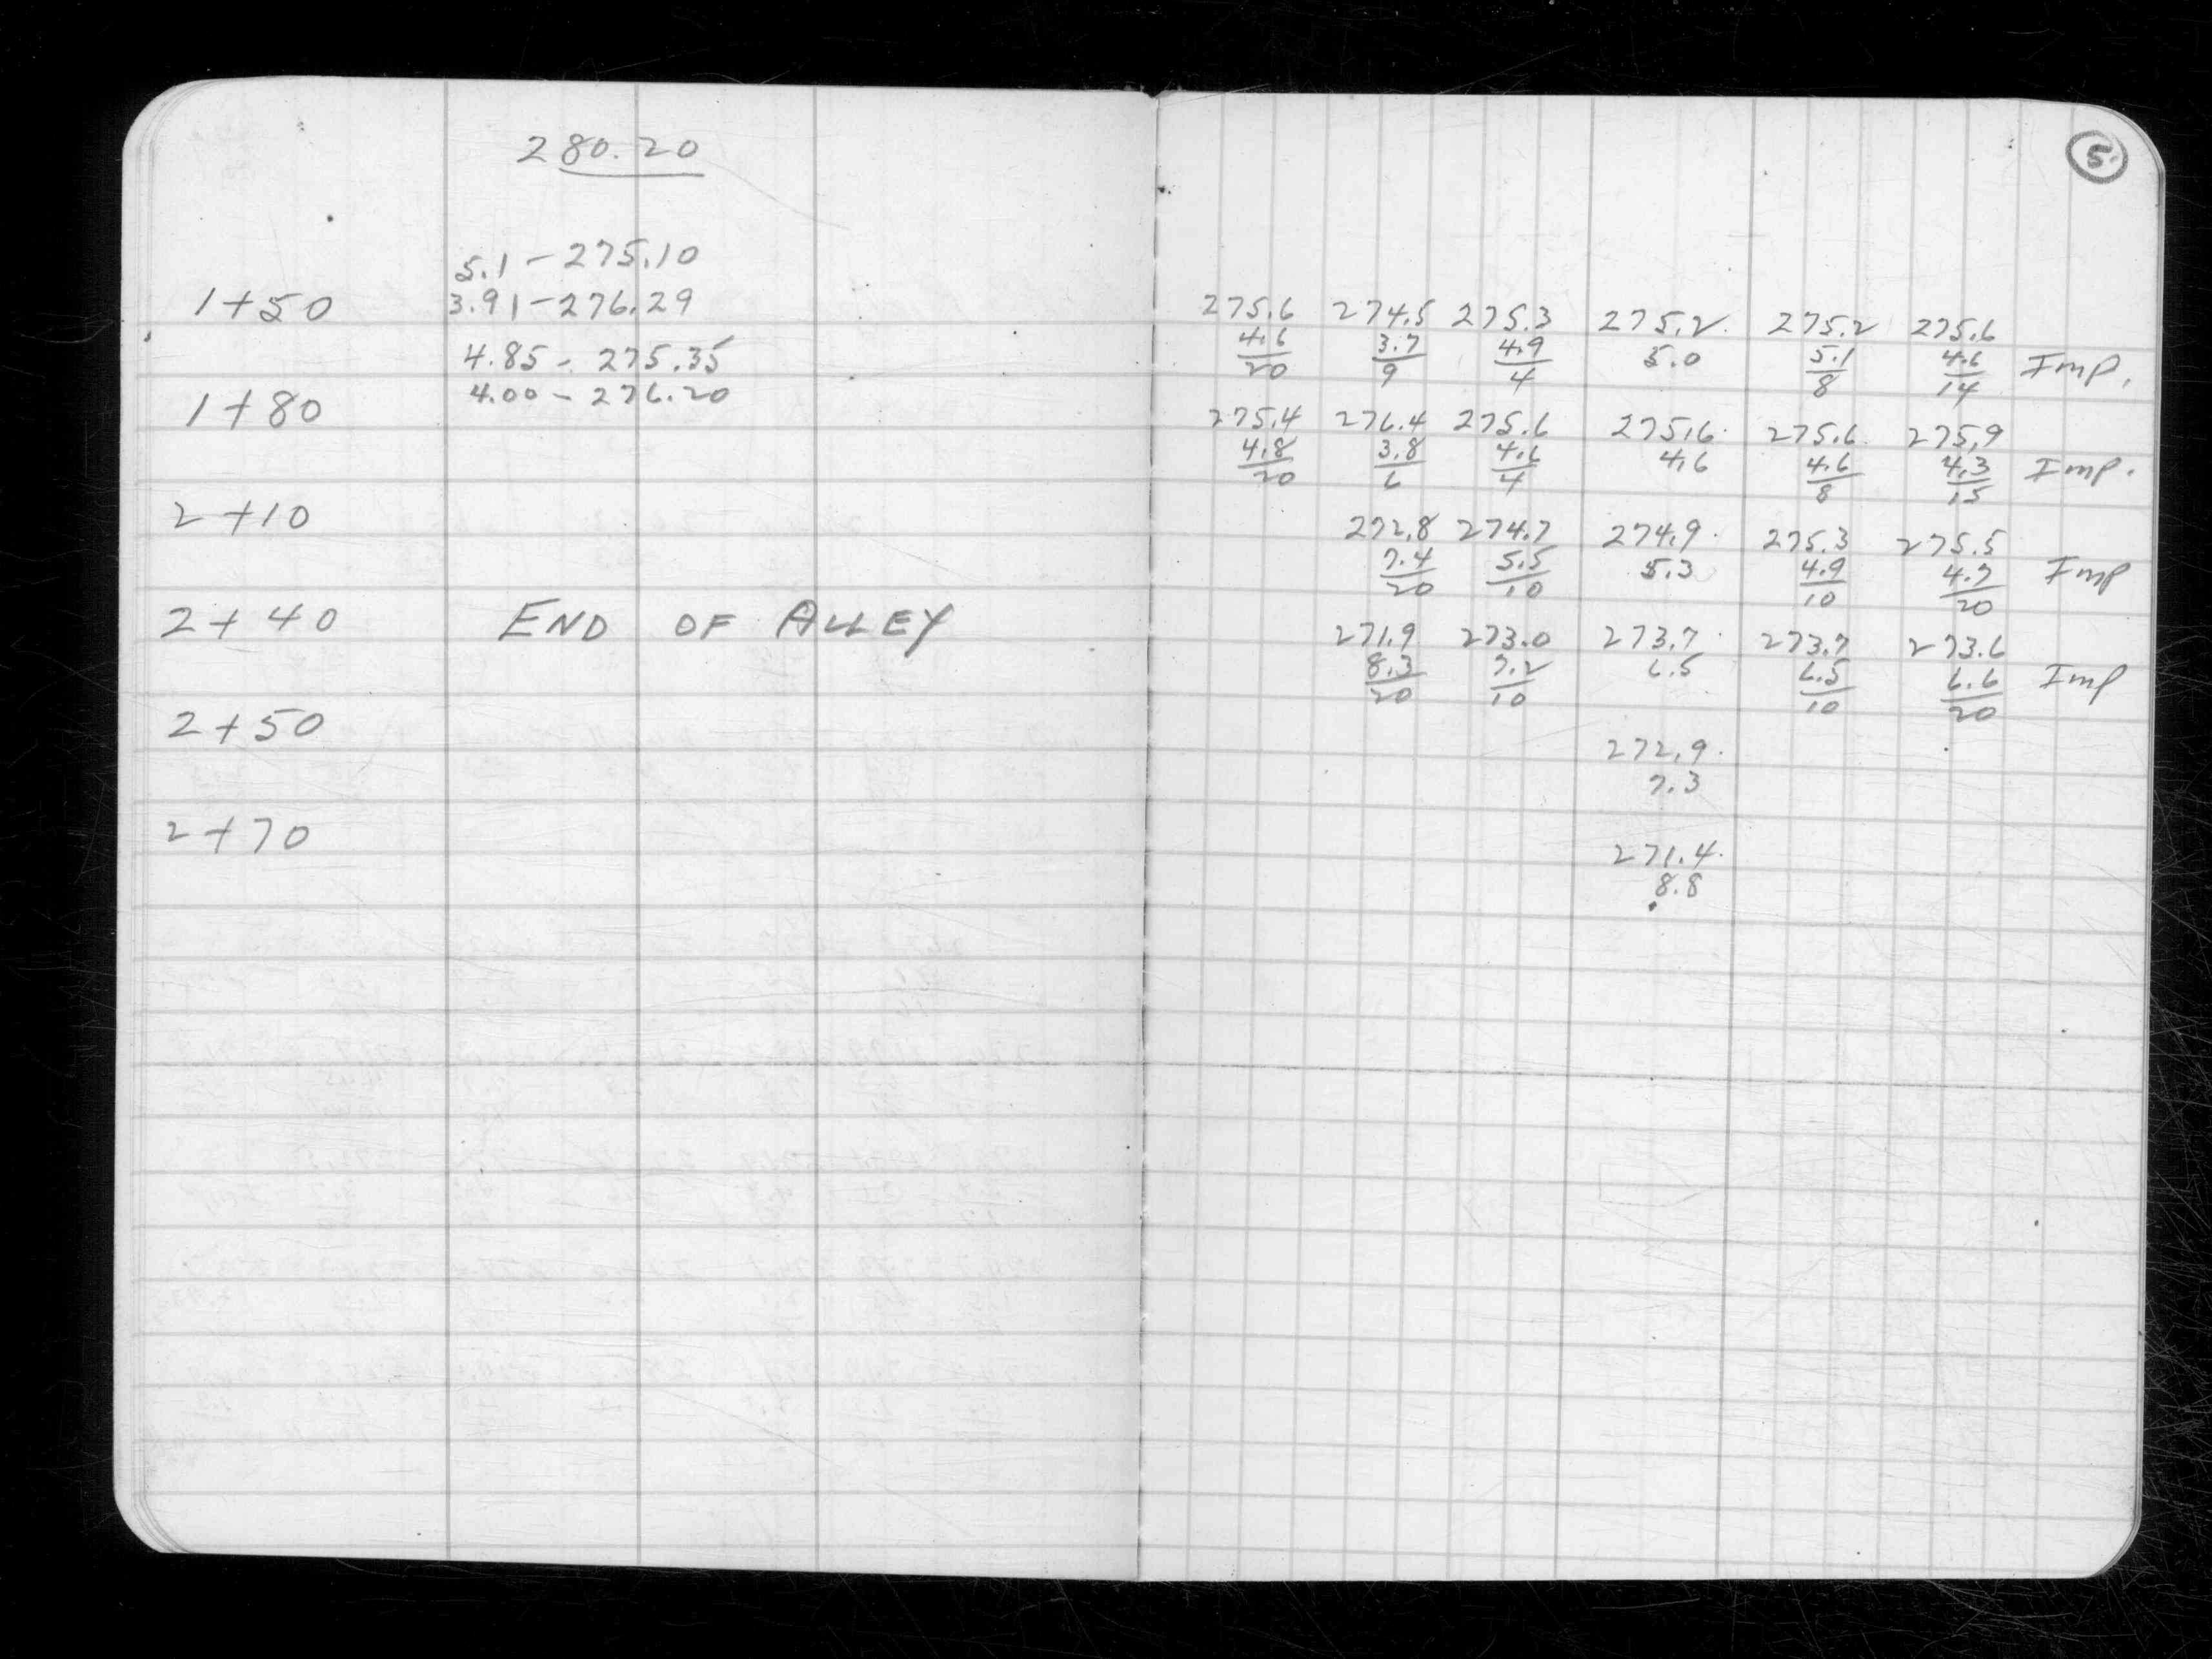 280.20
5.1 - 275.10
1+50 3.91 - 276.29
4.85 - 275.35
1+80 4.00 - 276.20
2+10
2+40 END OF ALLEY
2+50
2+70
5
275.6 274.5 275.3 275.2 275.2 275.6
4.6 3.7 4.9 5.0 5.1 4.6 Imp.
20 9 4 8 14
275.4 276.4 275.6 275.6 275.6 275.9
4.8 3.8 4.6 4.6 4.6 4.3 Imp.
20 6 4 8 15
272.8 274.7 274.9 275.3 275.5
7.4 5.5 5.3 4.9 4.7 Imp
20 10 10 20
271.9 273.0 273.7 273.7 273.6
8.3 7.2 6.5 6.5 6.6 Imp
20 10 10 20
272.9
7.3
271.4
8.8